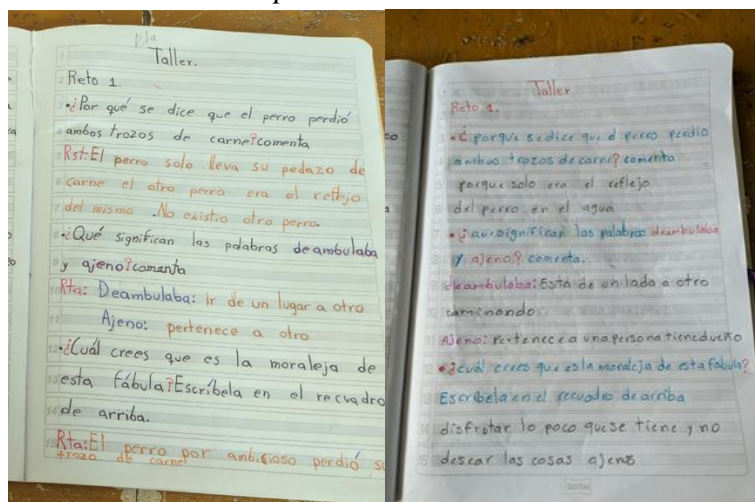 Taller.
Reto 1.
•¿Por qué se dice que el perro perdió
ambos trozos de carne?comenta
Rst:El perro solo lleva su pedazo de
carne el otro perro era el reflejo
del mismo .No existio otro perro.
•¿Qué significan las palabras deambulaba
y ajeno?comenta
Rta: Deambulaba: ir de un lugar a otro
Ajeno: pertenece a otro
•¿Cuál crees que es la moraleja de
esta fábula?Escríbela en el recuadro
de arriba.
Rta:El perro por ambicioso perdió su
trozo de carne
Taller
Reto 1.
•¿porque se dice que el perro perdio
ambos trozos de carne? comenta
porque solo era el reflejo
del perro en el agua
•¿que significan las palabras deambulaba
y ajeno?. comenta.
deambulaba: Está de un lado a otro
caminando
Ajeno: pertenece a una persona tiene dueño
•¿cuál crees que es la moraleja de esta fabula?
Escribela en el recuadro de arriba
disfrutar lo poco que se tiene y no
desear las cosas ajenas